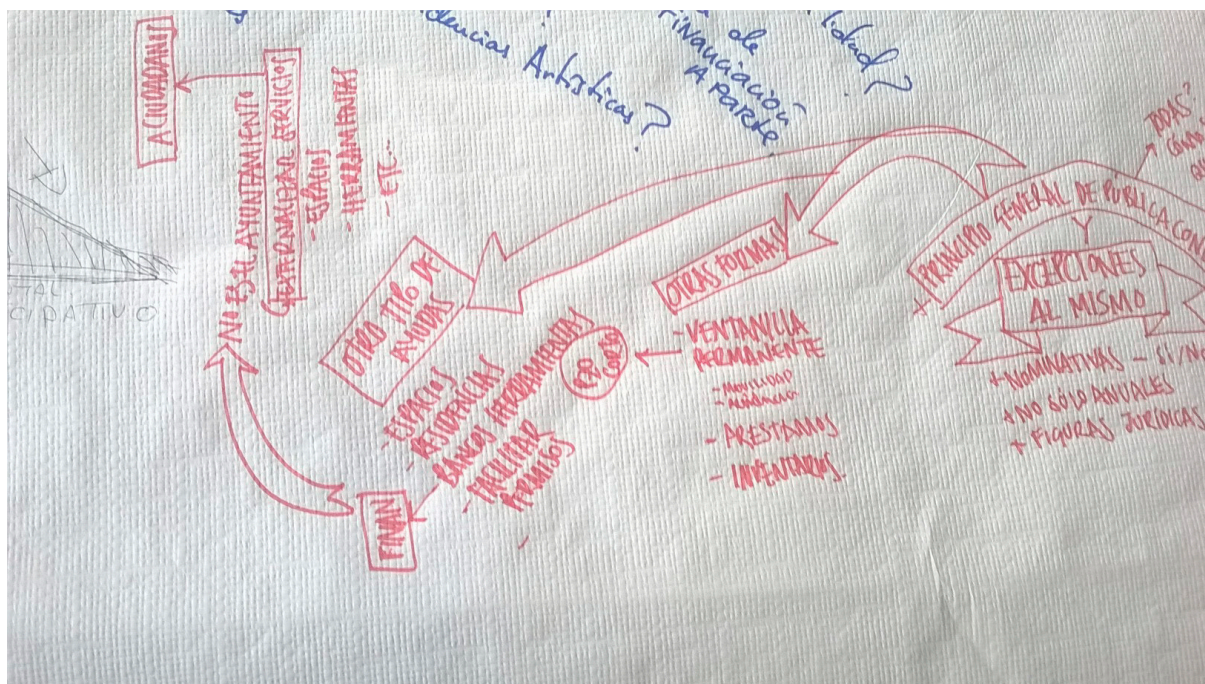 Artísticas?
de
Financiación
A PARTE
NO ES EL AYUNTAMIENTO
EXTERNALIZAR SERVICIOS
- ESPACIOS
- HERRAMIENTAS
- ETC--
CIPATIVO
OTRO TIPO DE
AYUDAS
- ESPACIOS
- RESIDENCIAS
BANCOS HERRAMIENTAS
- FACILITAR
PERMISOS
FINAN
OTRAS FORMAS
- VENTANILLA
PERMANENTE
- MOVILIDAD
- PRESTAMOS
- INVENTARIOS.
+ PRINCIPIO GENERAL DE PÚBLICA CON
Y
EXCEPCIONES
AL MISMO
+ NOMINATIVAS - SI/NO
+ NO SÓLO ANUALES
+ FIGURAS JURÍDICAS
TODAS?